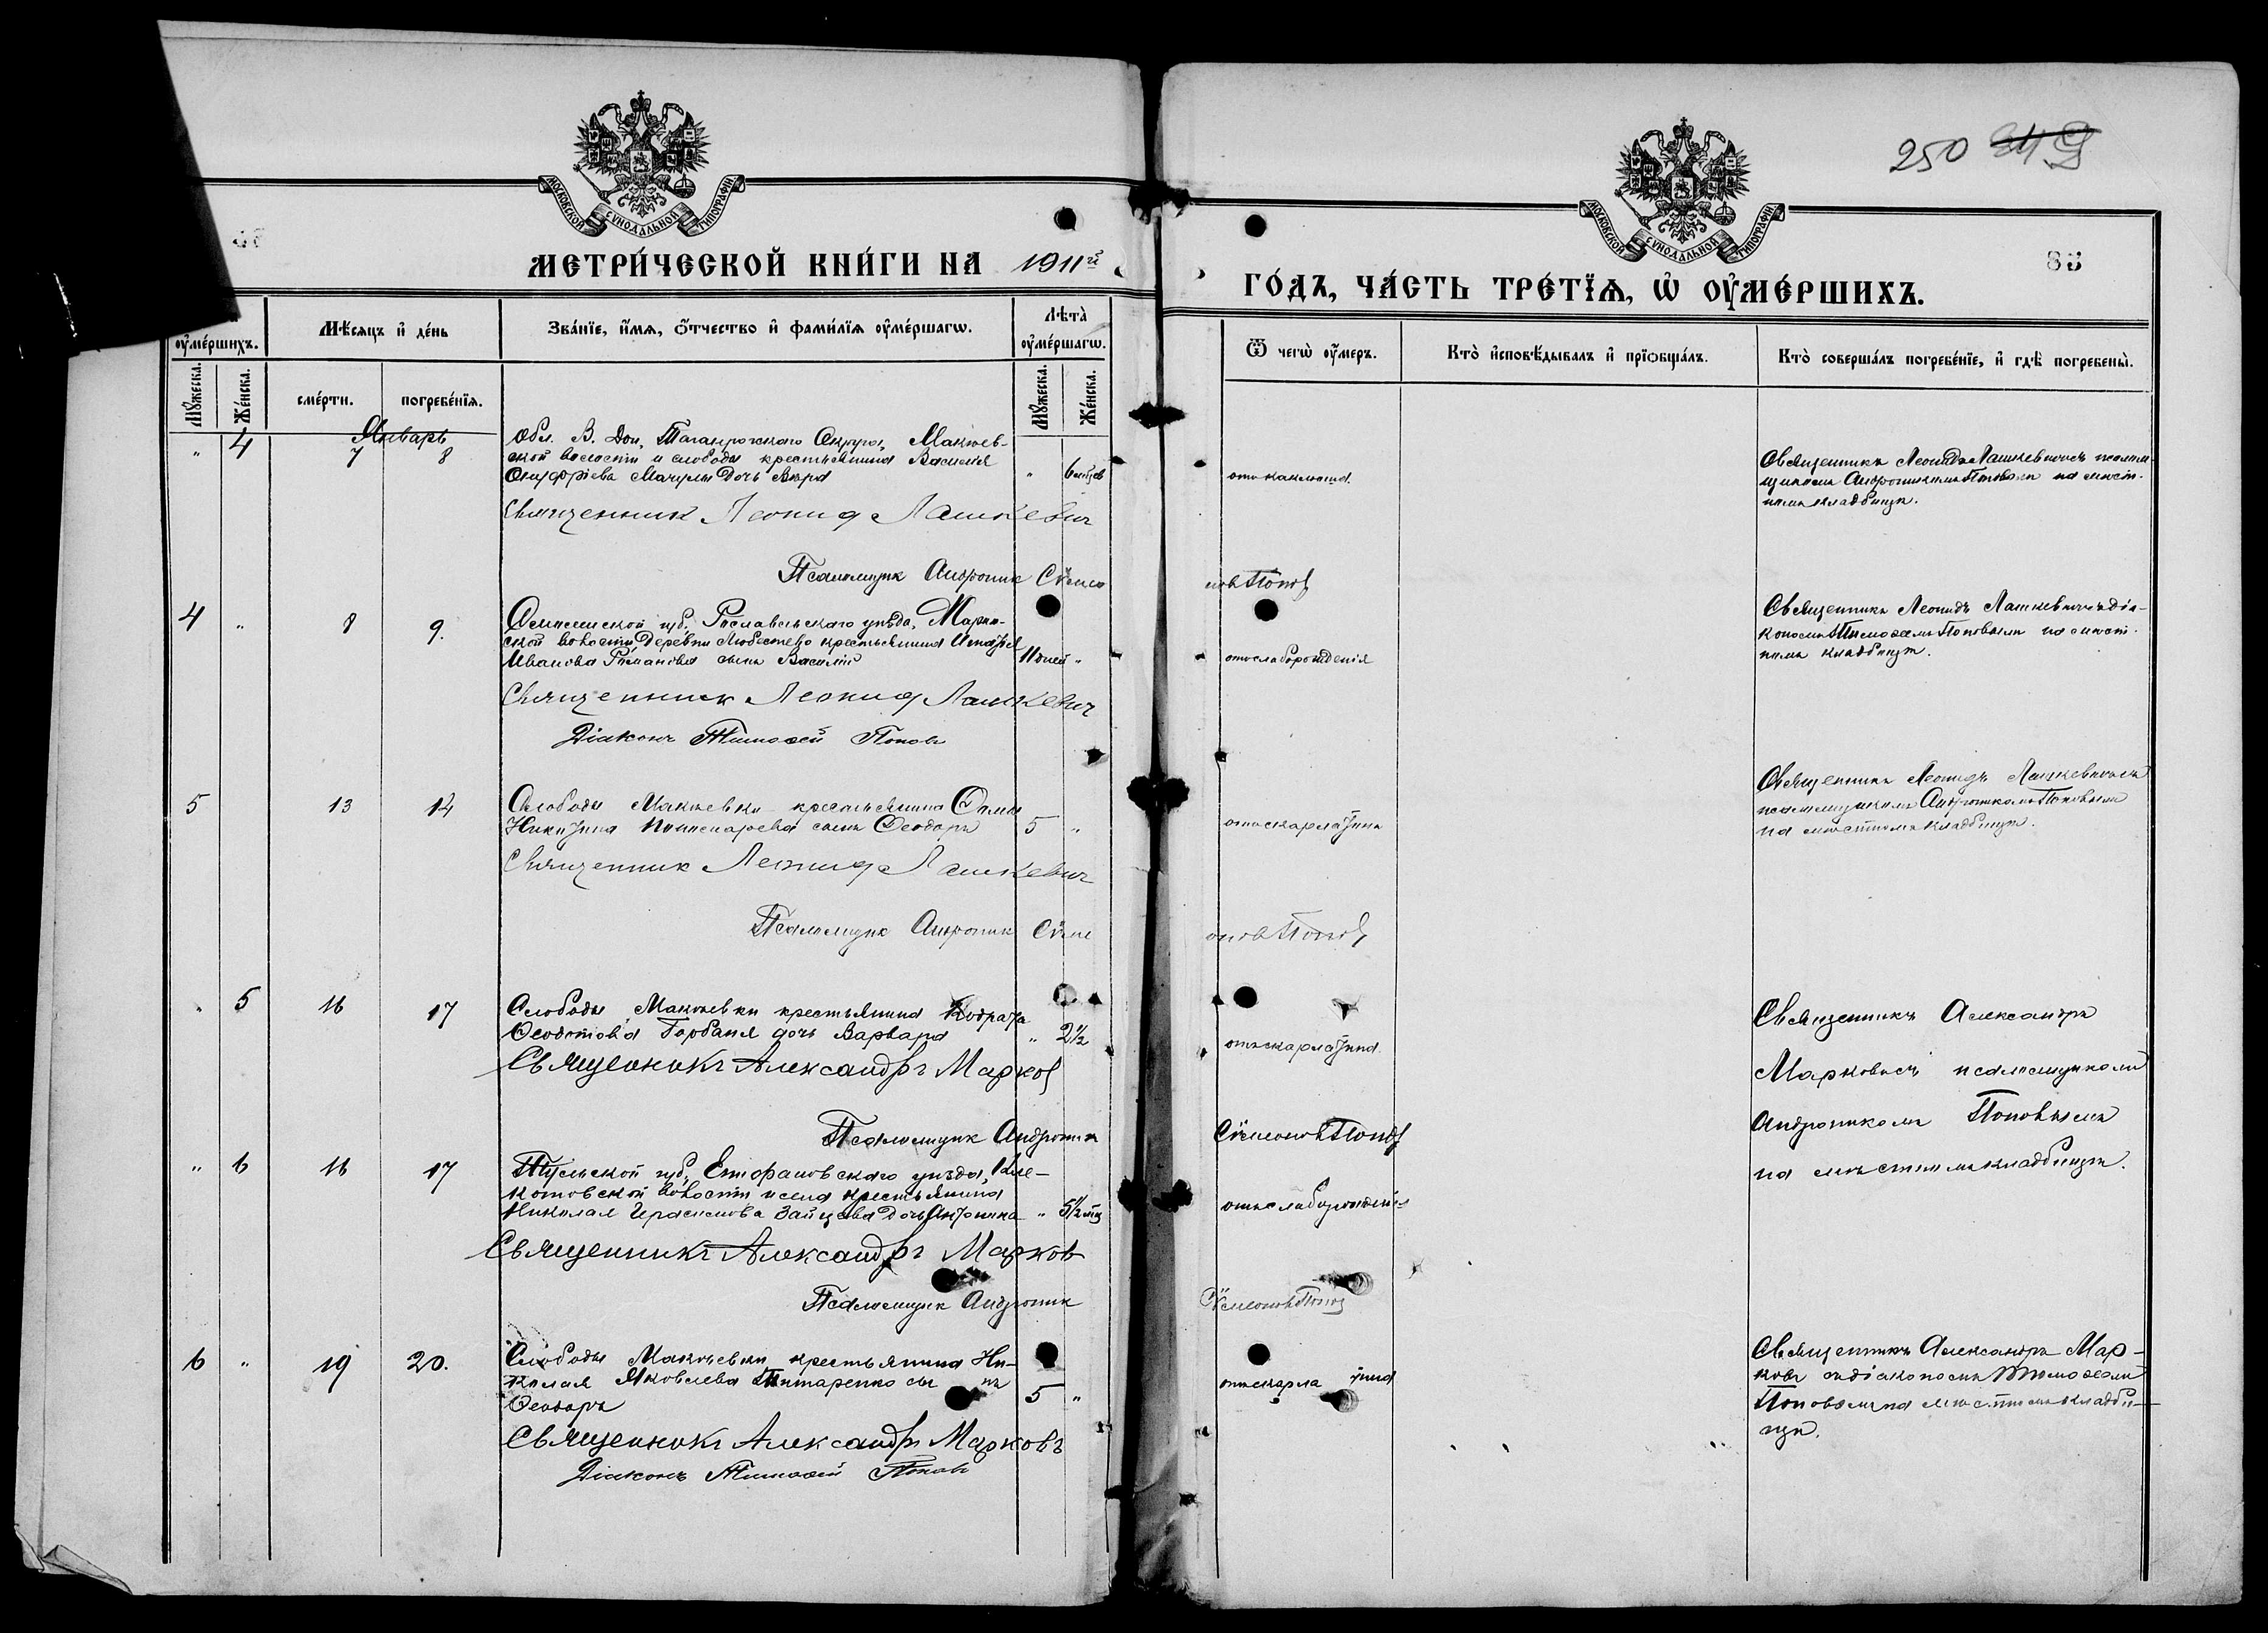 250
МОСКОВСКОЙ СѴНОДАЛЬНОЙ ТИПОГРАФІИ.
МОСКОВСКОЙ СѴНОДАЛЬНОЙ ТИПОГРАФІИ.
85
МЕТРИ́ЧЕСКОЙ КНИ́ГИ НА 1911й
ГО́ДЪ, ЧА́СТЬ ТРЕ́ТЇѦ, Ѡ҆ ОУ҆МЕ́РШИХЪ.
оу҆ме́ршихъ.
Мѣ́сяцъ и҆ де́нь
Зва́нїе, и҆́мѧ, ѻ҆́тчество и҆ фами́лїѧ оу҆ме́ршагѡ.
Лѣта̀ оу҆ме́ршагѡ.
Ѿ чегѡ̀ оу҆́меръ.
Кто̀ и҆сповѣ́дывалъ и҆ прїѡбща́лъ.
Кто̀ соверша́лъ погребе́нїе, и҆ гдѣ̀ погребены̀.
Мꙋ́жеска.
Же́нска.
сме́рти.
погребе́нїѧ.
Мꙋ́жеска.
Же́нска.
Январь
" 4 7 8
Обл. В. Дон, Таганрогскаго Округа, Макѣев-
ской волости и слободы крестьянина Василія
Онуфріева Мачулы дочь Вѣра " 6 мѣсцев
Священник Леонид Лашкевич
Псаломщик Андроник Сѵмео
новъ Попов
отъ коклюша
Священникъ Леонидъ Лашкевичъ съ псалом-
щикомъ Андроникомъ Поповым на мѣст-
номъ кладбищѣ.
4 " 8 9.
Смоленской губ. Рославльскаго уѣзда,
ской волости деревни крестьянина
Иванова Романова сынъ Василій 11 дней "
Священник Леонид Лашкевич
Діаконъ Тимоѳей Поповъ
отъ слаборожденія
Священникъ Леонидъ Лашкевичъ съ діа-
кономъ Тимоѳеемъ Поповымъ на мѣст-
номъ кладбищѣ.
5 13 14
Слободы Макѣевки крестьянина
Никитина сынъ Ѳеодоръ 5 "
Священник Леонид Лашкевич
Псаломщик Андроник Сѵме
оновъ Попов
отъ скарлатины
Священникъ Леонидъ Лашкевичъ съ
псаломщикомъ Андроникомъ Поповымъ
на мѣстномъ кладбищѣ.
" 5 16 17
Слободы Макѣевки крестьянина Кодрата
Ѳеодотова Горбаня дочь Варвара " 2½
Священникъ Александръ Марков
Псаломщик Андроник
Сѵмеоновъ Попов
отъ скарлатины
Священникъ Александръ
Марковъ съ псаломщикомъ
Андроникомъ Поповымъ
на мѣстномъ кладбищѣ.
" 6 16 17
Тульской губ. Епифановскаго уѣзда,
котовской волости и села крестьянина
Николая Герасимова Зайцева дочь Антонина " 5½ мц
Священникъ Александръ Марковъ
Псаломщик Андроник
Сѵмеоновъ Попов
отъ слаборожденія
6 " 19 20.
Слободы Макѣевки крестьянина Ни-
колая Яковлева Титаренко сынъ
Ѳеодоръ 5 "
Священникъ Александръ Марковъ
Діаконъ Тимоѳей Поповъ
отъ скарлатина
Священникъ Александръ Мар-
ковъ съ діакономъ Тимоѳеемъ
Поповымъ на мѣстномъ кладби-
щѣ.